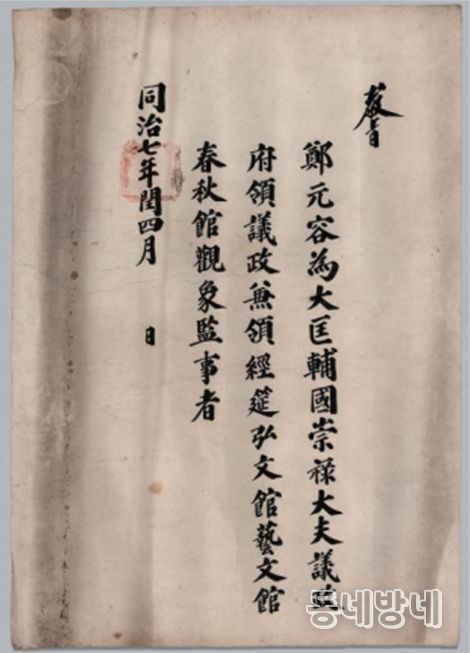 敎旨
鄭元容為大匡輔國崇祿大夫議政
府領議政兼領經筵弘文館藝文館
春秋館觀象監事者
同治七年閏四月 日
동네방네